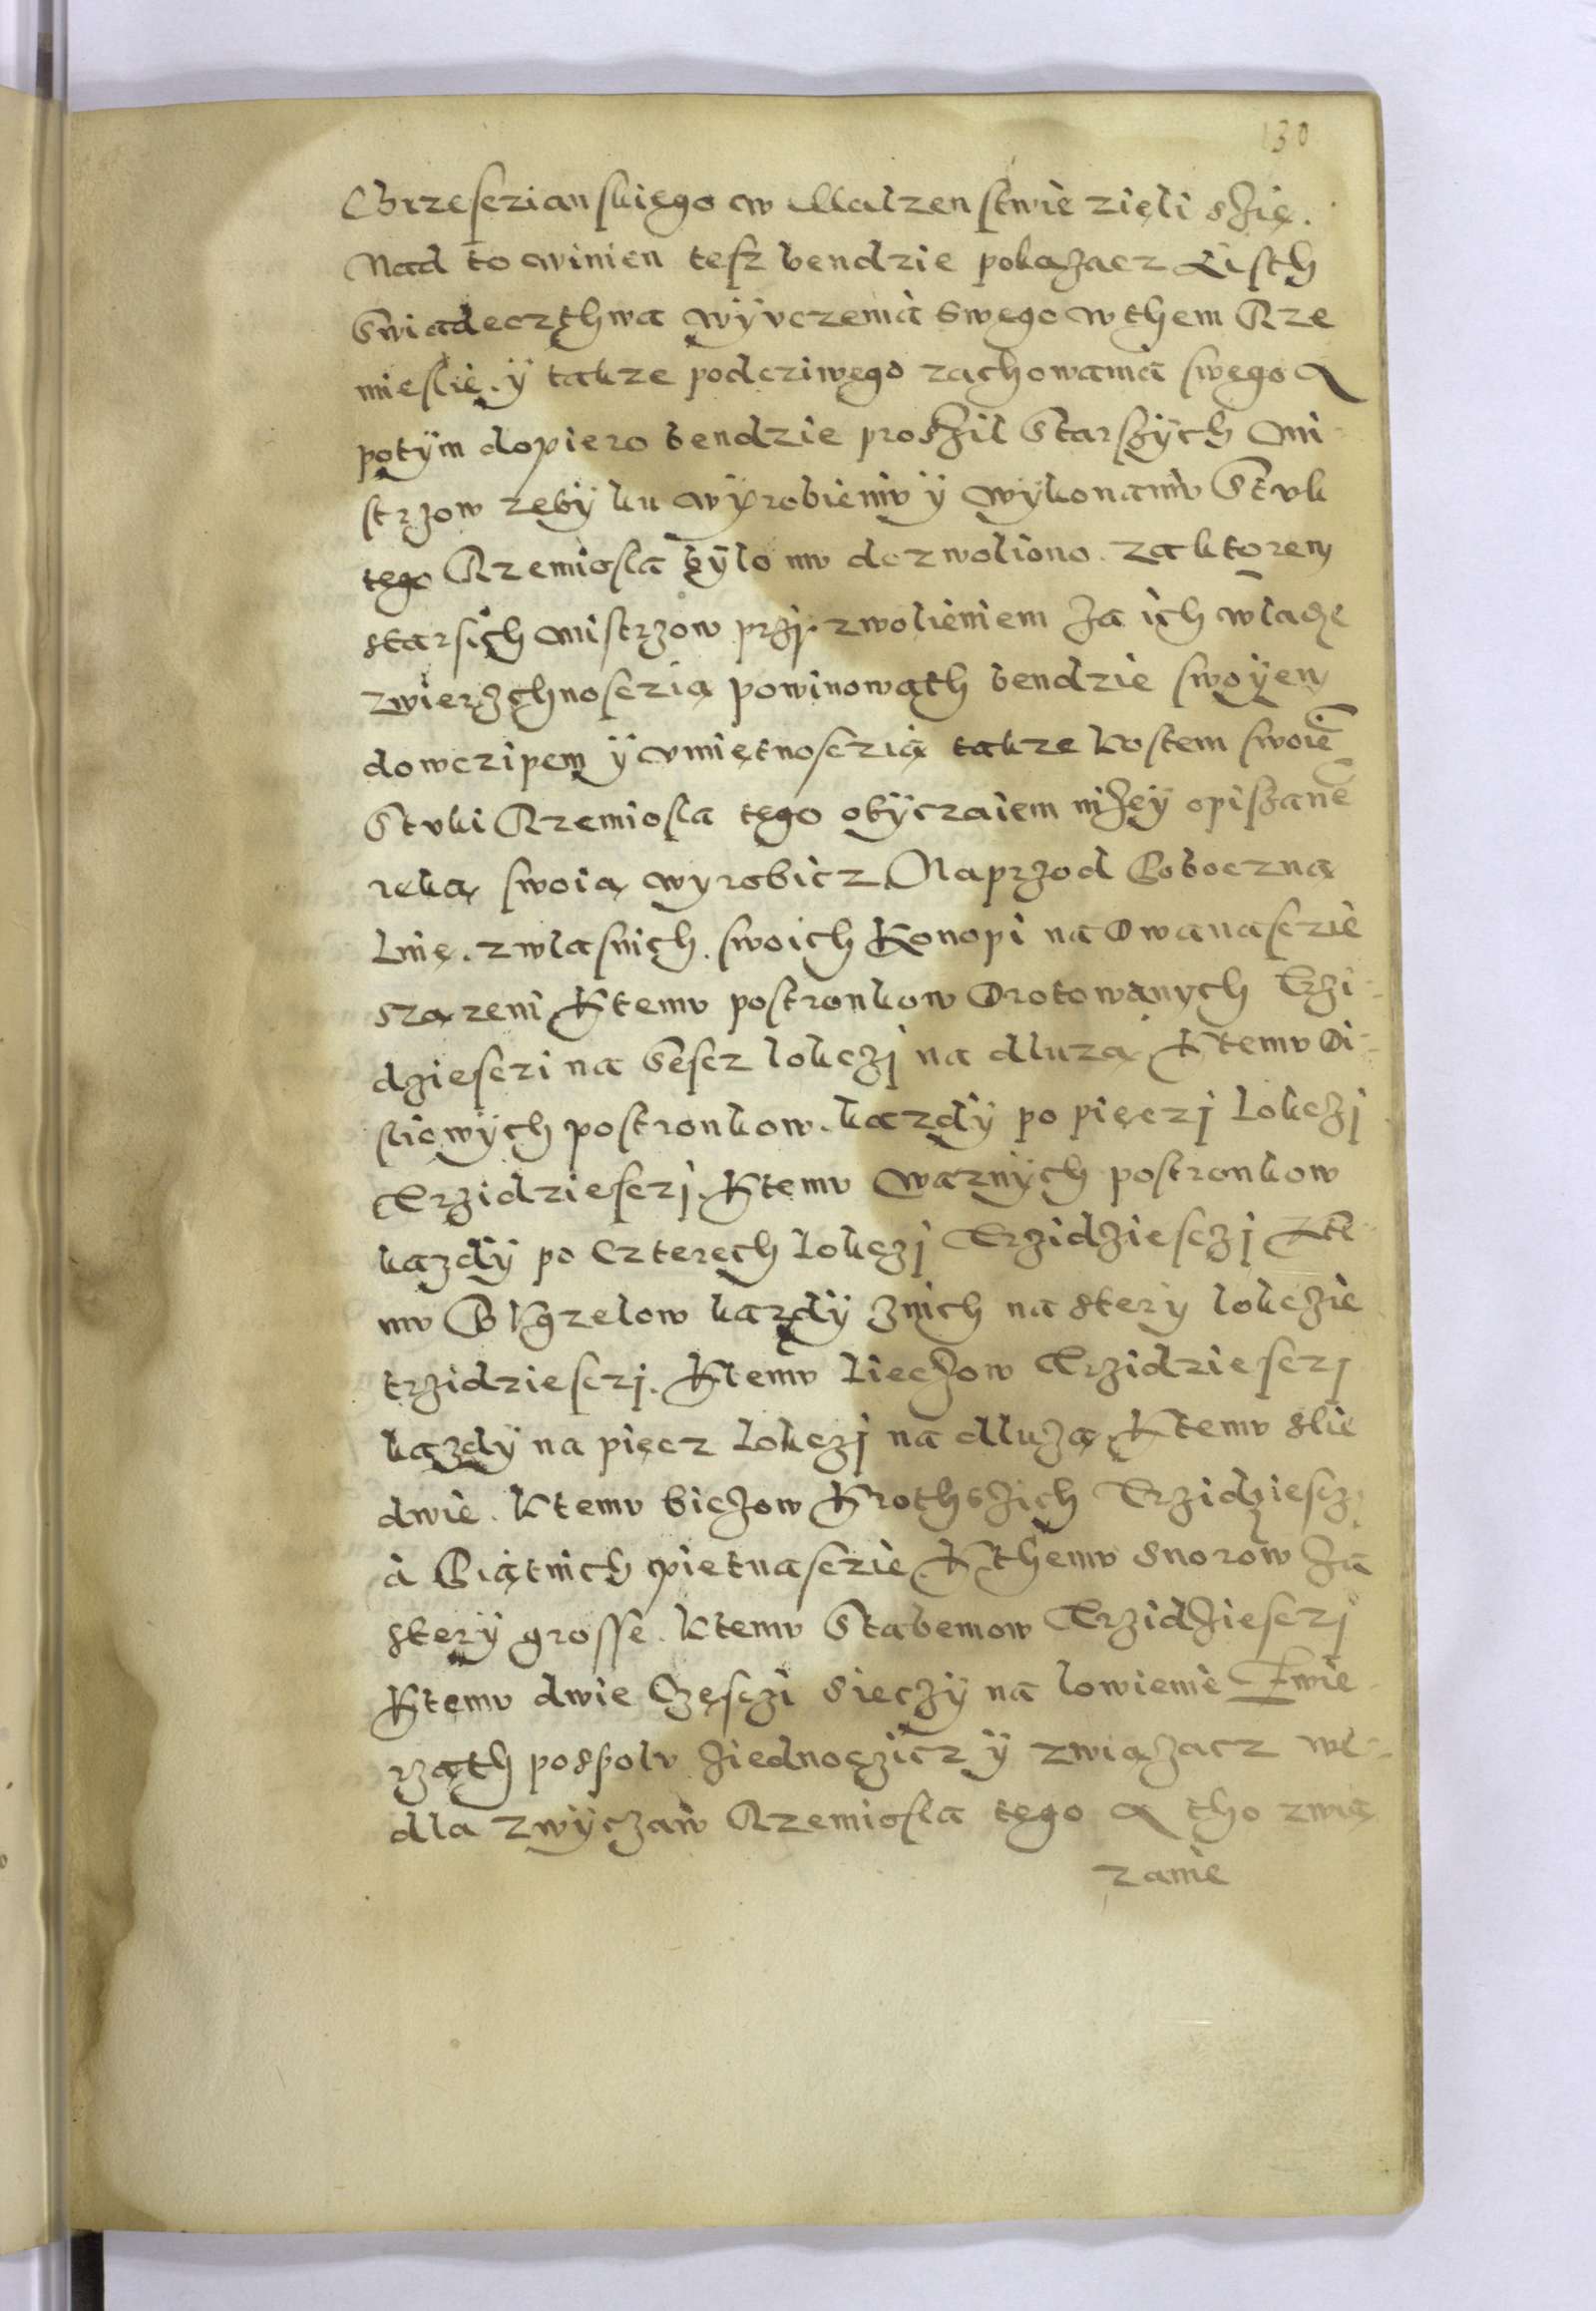 130
Chrzesczianskięgo w Malzenstwie zięli szię.
Nad to winien tesz bendzie pokazacz Listh
Swiadecztwa wÿvczenia swego w them Rze
miesłie. ÿ takze podcziwego zachowania swego A
potÿm dopiero bendzie proszil Starszÿch Mi-
strzow zebÿ ku wÿrobieniv ÿ wykonaniv Stvk
tego Rzemiosla bÿlo mv dozwoliono. za ktorem
starsich Mistrzow przj. zwolieniem Ja ich wladze
zwierzchnosczią powinowath bendzie swoÿem
dowczipem ÿ vmiętnosczią takze kostem swoiē
Stvki Rzemiosla tego obÿczaiem niżeÿ opiszanē
reką swoią wyrobicz. Naprzod Poboczną
Linę. z wlasnich. swoich Konopi na Dwanascie
szązeni Ktemv postronkow Drotowanych Trzi-
dziesczi na Sescz lokczj na dluzą Ktemv Di-
sliowÿch postronkow. kazdÿ po pięczj lokczj
Trzidziesczj. Ktemv Warnÿch postronkow
kazdÿ po Czterech lokczj Trzidziesczj Kte-
mv Pkgzelow kazdÿ znich na sterÿ lokczie
trzidziesczj. Ktemv lieczow Trzidziesczj
kazdÿ na pięcz lokczj na dluzą Ktemv slie
dwie. Ktemv biczow Krothszich Trzidziescz
à Piątnich pietnasczie Kthemv snorow za
sterÿ grosse. Ktemv Stabemow Trzidziesczj
Ktemv dwie Częsczi sieczÿ na lowienie Zwie
rząth pospolv ziednoczicz ÿ związacz we-
dla zwÿczaiv Rzemiosla tego A tho zwię
zanie